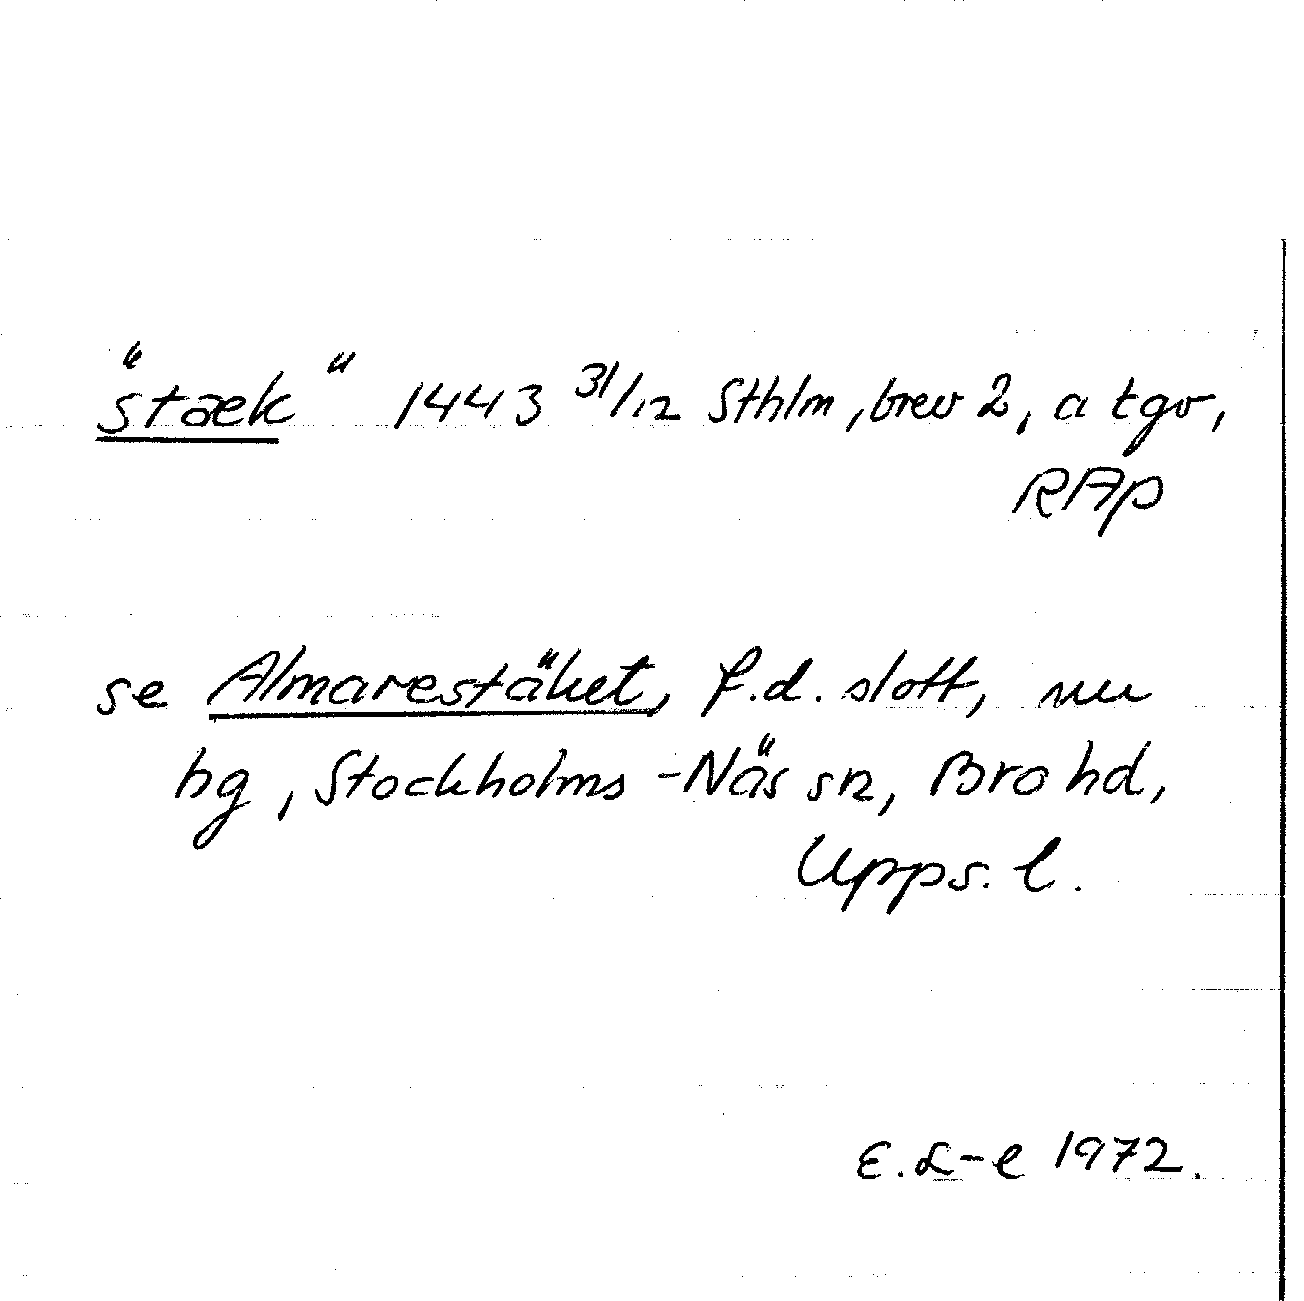 "stæk" 1443 31/12 Sthlm, brev 2, a tgv,
RAp
se Almarestäket, f.d. slott, nu
hg, Stockholms-Näs sn, Bro hd,
Upps. l.
E. L-e 1972.